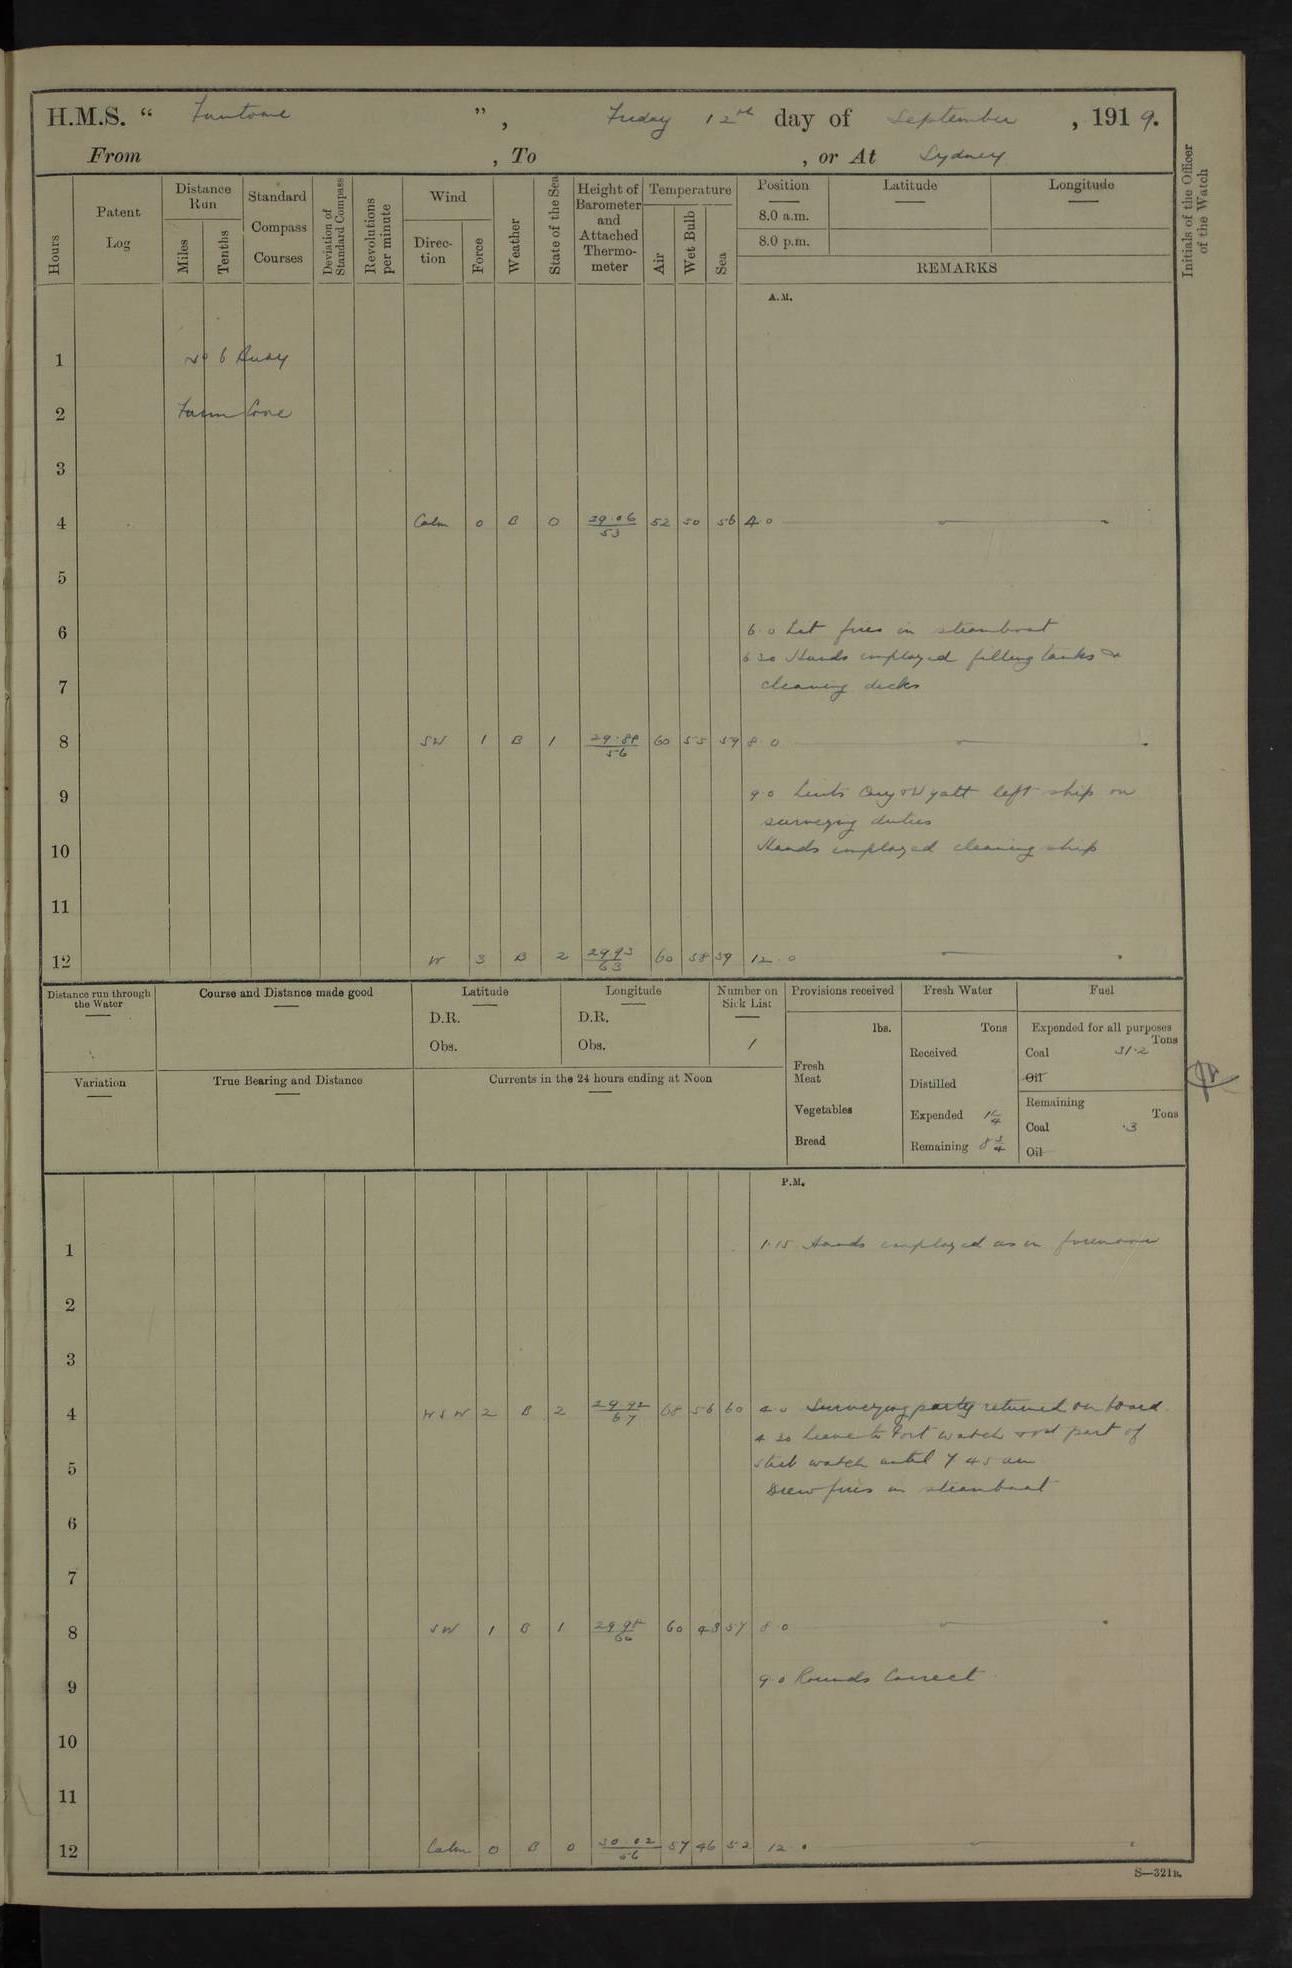 H.M.S. “ Fantome ”, Friday 12th day of September, 1919.
From , To , or At Sydney
Hours
Patent Log
Distance Run
Miles
Tenths
Standard Compass Courses
Deviation of Standard Compass
Revolutions per minute
Wind
Direc-tion
Force
Weather
State of the Sea
Height of Barometer and Attached Thermo-meter
Temperature
Air
Wet Bulb
Sea
Position
8.0 a.m.
8.0 p.m.
Latitude
Longitude
REMARKS
Initials of the Officer of the Watch
A.M.
1 No 6 Buoy
2 Farm Cove
3
4 Calm 0 B 0 29.06/53 52 50 56 4.0
5
6 6.0 Lit fires in steamboat
6 30 Hands employed filling tanks &
7 cleaning decks
8 SW 1 B 1 29.88/56 60 55 59 8.0
9 9.0 Lieuts & Wyatt left ship on
surveying duties
10 Hands employed cleaning ship
11
12 W 3 B 2 29 93/63 60 58 59 12.0
Distance run through the Water
Course and Distance made good
Latitude
D.R.
Obs.
Longitude
D.R.
Obs.
Number on Sick List
1
Provisions received
lbs.
Fresh Meat
Vegetables
Bread
Fresh Water
Tons
Received
Distilled
Expended
Remaining 8 3/4
Fuel
Expended for all purposes
Tons
Coal 31.2
Oil
Remaining
Tons
Coal .3
Oil
Variation
True Bearing and Distance
Currents in the 24 hours ending at Noon
P.M.
1 1.15 Hands employed as in forenoon
2
3
4 WSW 2 B 2 29 92/67 68 56 60 4.0 Surveying party returned on board
4 30 Leave to Port watch & part of
5 Stbd watch until 7 45 am
Drew fires in steamboat
6
7
8 SW 1 B 1 29 98/60 60 48 57 8 0
9 9.0 Rounds Correct
10
11
12 Calm 0 B 0 30.02/56 57 46 52 12.
S—321B.